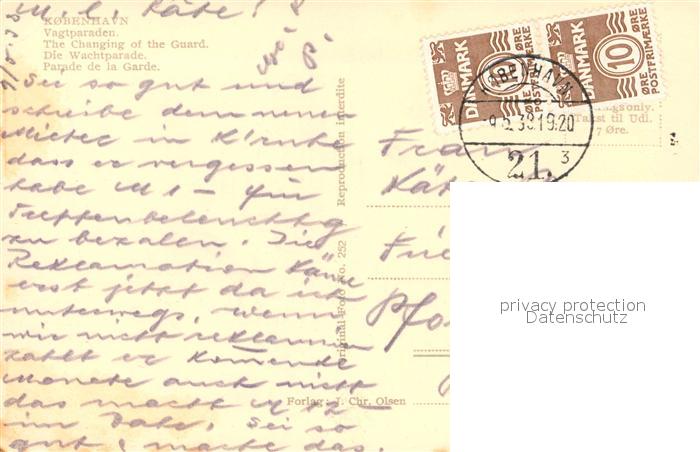 M. l. Käte!
KØBENHAVN
Vagtparaden.
The Changing of the Guard.
Die Wachtparade.
Parade de la Garde.
Sei so gut und
schreibe dem neuen
Mieter in K'ruhe
dass er vergessen
habe M 1 – für
Treppenbeleuchtg
zu bezahlen. Die
Reklamation käme
erst jetzt da ich
unterwegs, wenn
wir nicht reklamieren
zahlt er kommende
Monate auch nicht
das macht 12 –
im Jahr. Sei so
gut & mache das.
Reproduction interdite
Original-Foto No. 252
Forlag: J. Chr. Olsen
DANMARK
10
ØRE
POSTFRIMÆRKE
DANMARK
10
ØRE
POSTFRIMÆRKE
KØBENHAVN
19.20
21.
3
only.
Takst til Udl.
7 Øre.
Frau
Kät
Pfo
privacy protection
Datenschutz